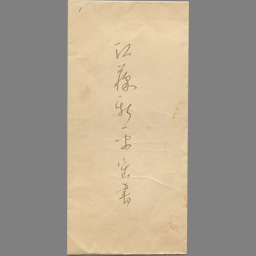 江藤新平宛書